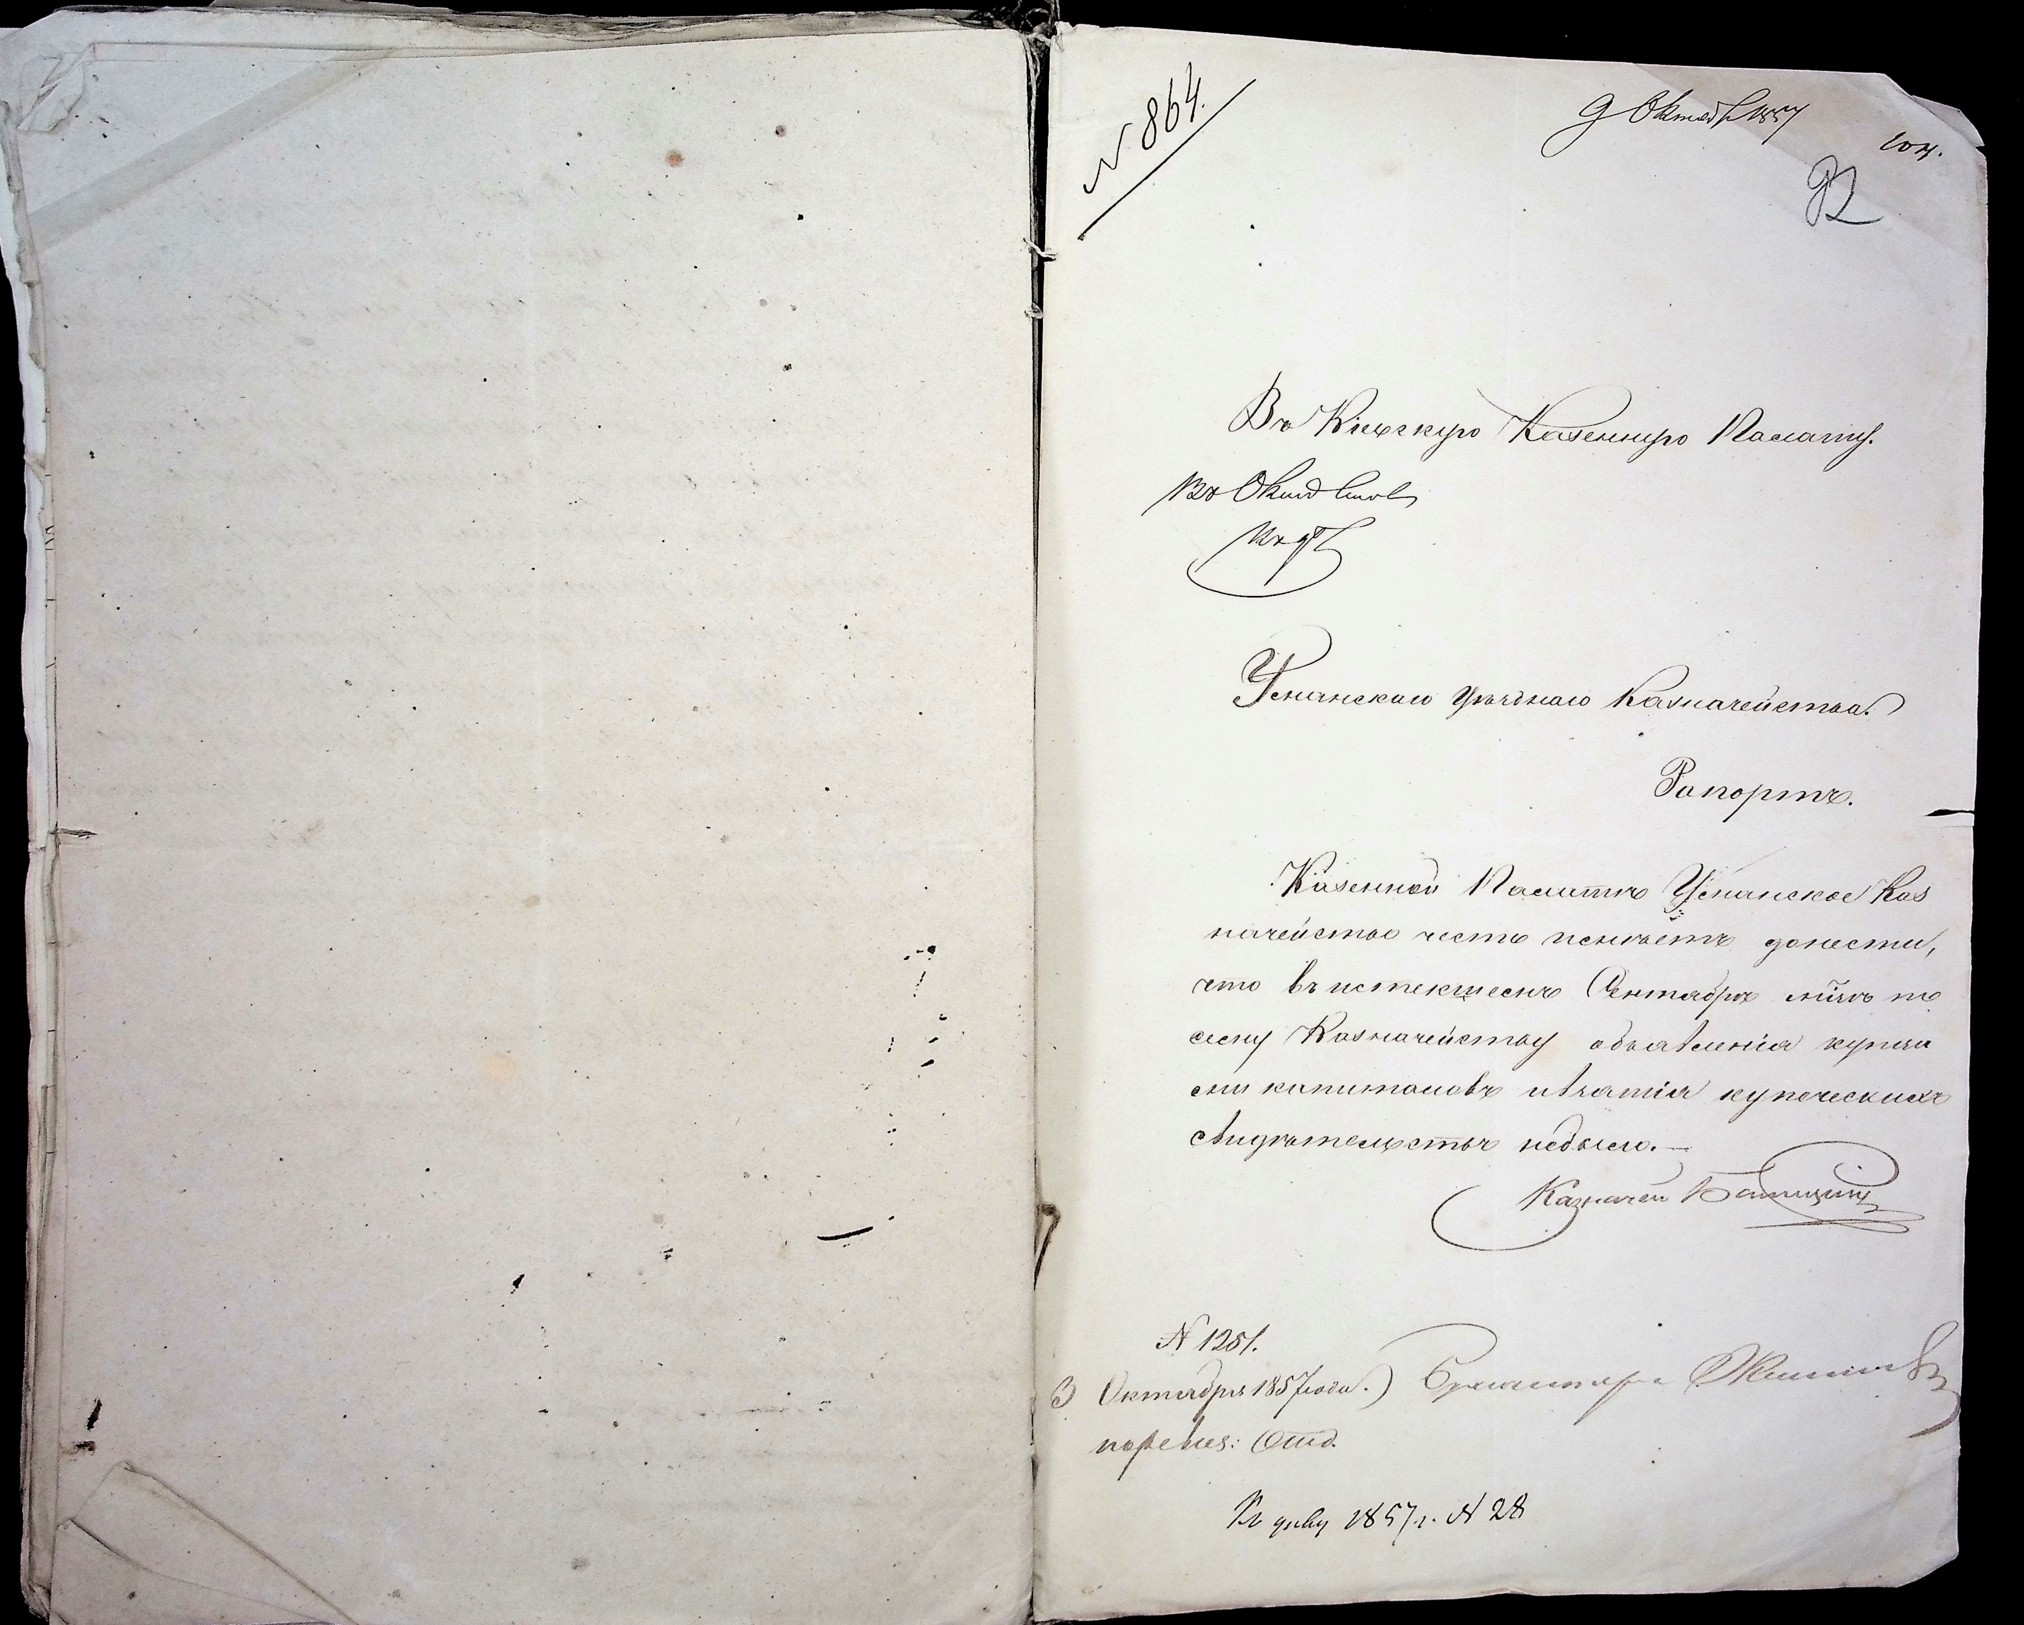 N 864.
9 Октяб 1857
104.
92
Въ Кіевскую Казенную Палату.
Уманскаго Уѣзднаго Казначейства.
Рапортъ.
Казенной Палатѣ Уманское Каз
начейство честь имѣетъ донести,
что въ истекшемъ Сентябрѣ м̃цѣ по
сему Казначейству объявленія купца
ми капиталовъ и взятія купеческихъ
свидѣтельствъ небыло. —
Казначей
N 1251.
3 Октября 1857 года.
Бухгалтеръ
по ревиз: Отд.
Къ дѣлу 1857 г. N 28